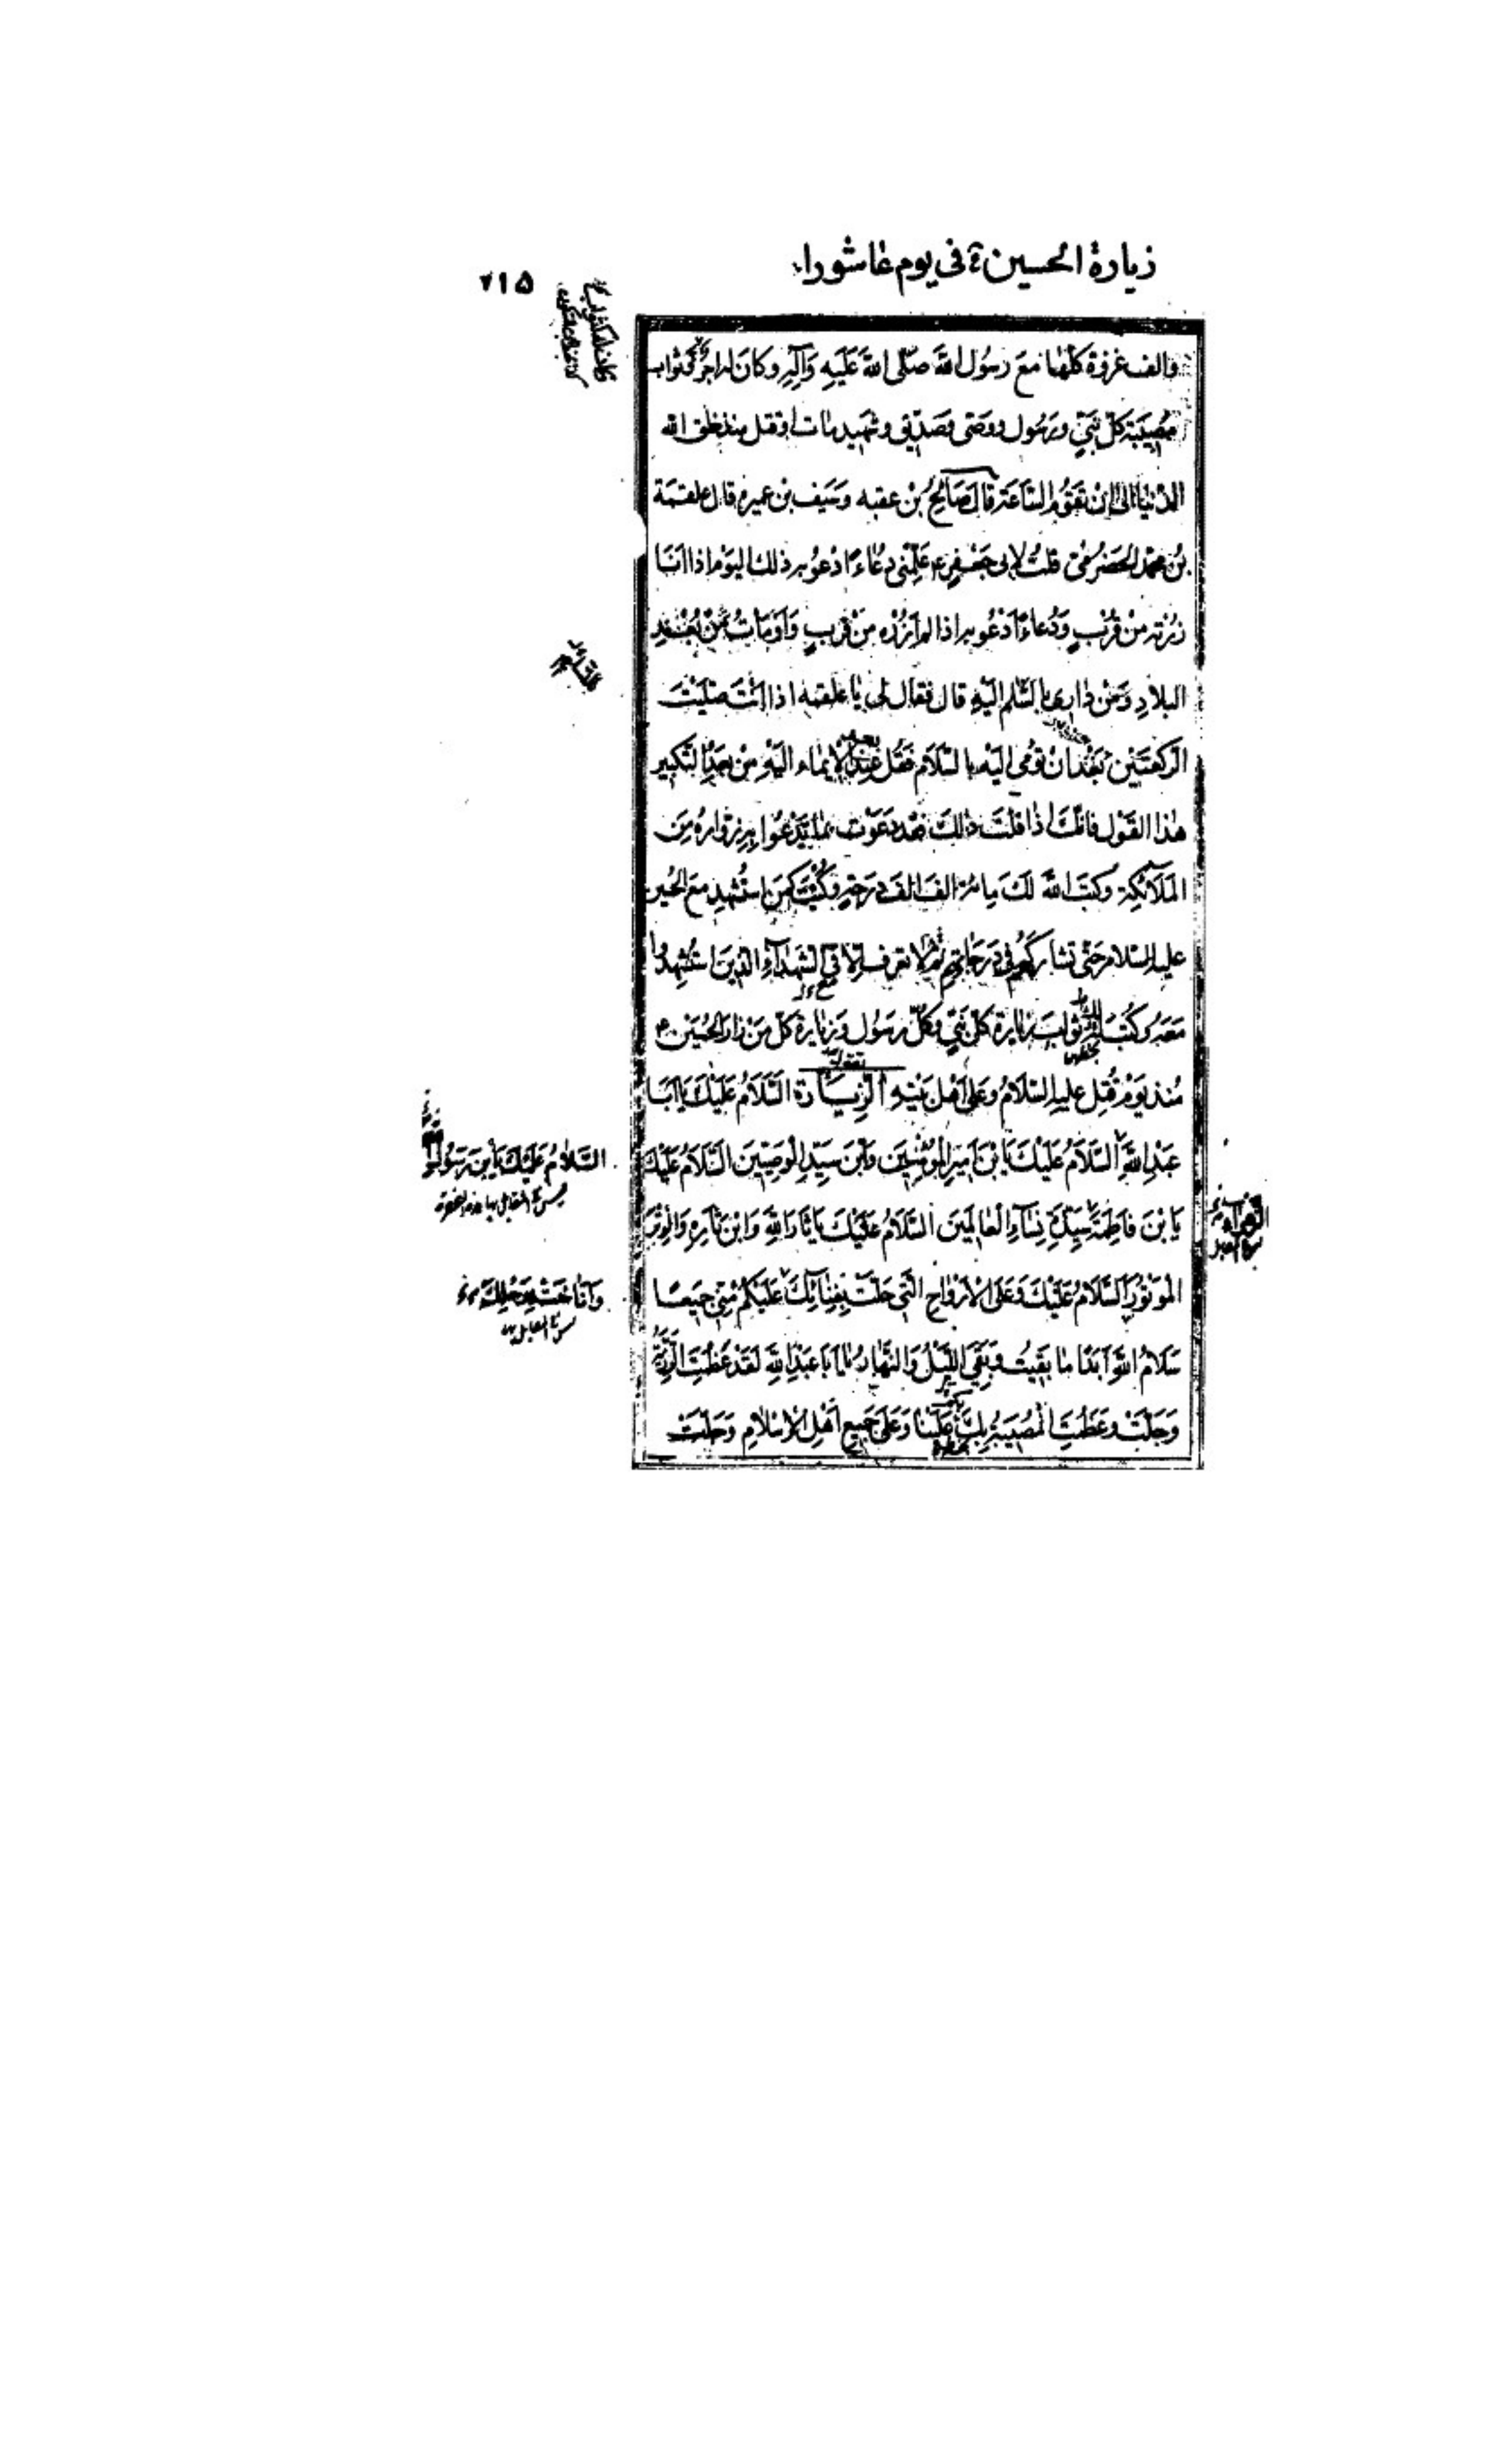 زيارة الحسين ع في يوم عاشورا
٧١۵
والف غزوة كلها مع رسول الله صَلّى الله عَلَيهِ وَآلِهِ وكان له اجر كثواب
مُصيبَة كلّ نَبيّ ورَسُول ووَصىّ وصَدّيق وشَهيد مات اوقتل منذ خلق الله
الدّنيا الى ان تقوُم السّاعَة قال صَالِحُ بن عقبه وسَيف بن عميره قال علقمَة
بنُ محمّد الحَضرَمُى قلتُ لابى جَعْفرٍ ع عَلِّمْنى دُعاءً اَدْعُو به ذلك اليَوْم اذا اَنَا
زُرْته مِنْ قُرْبٍ وَدُعاءً اَدْعُو به اذا لم اَزُرْه مِنْ قربٍ وَاَوْمَأتُ مِنْ بُعْدِ
البلادِ وَمن دارى بالسّلم اليَهِ قال فقال لى يا علقمه اذا اَنْتَ صَلّيْتَ
الرّكعَتَيْن بَعْدَ ان تُومى اليَهْ بالسّلام فَقُل عِنْد الايماء اليَهِ مِنْ بَعدِ التّكبير
هٰذا القَوْل فانّكَ اذا قلتَ ذٰلك فقد دَعَوْت بما يَدْعُوا بِه زوّاره مِنَ
المَلآئِكة وكتَبَ الله لكَ مائة الف الفَ دَرَجة وكُنْتَ كمَن استُشهِد معَ الحُسين
عليه السّلام حَتّى تشاركهُم في دَرَجاتهم ثم لا تعرف الّا في الشّهَدآءِ الّذينَ استُشهِدُوا
مَعَهُ وكُتبَ لك ثوابَ زيارة كلّ نبيّ وكلّ رسَول وَزيارة كلّ مَنْ زارَ الحُسَين ع
مُنذ يَوْم قُتِل عليه السّلامُ وعَلى اَهْل بَيْتِه الزيارة اَلسّلَامُ عَلَيْكَ يا اَبا
عَبْدِ اللهِ اَلسّلَامُ عَلَيْكَ يَا بْنَ اَميرِ المُؤمِنينَ وَابْنَ سَيّدِ الوَصِيّينَ اَلسّلَامُ عَلَيْكَ
اَلسَّلامُ عَلَيْكَ يَابْنَ رَسُولِ اللهِ
يَا بْنَ فاطِمَةَ سَيّدَةِ نِسآءِ الْعالَمينَ اَلسّلامُ عَلَيْكَ يا ثارَ اللهِ وَابْنَ ثارِهِ وَالوِتْرَ
المَوْتُورَ اَلسّلَامُ عَلَيْكَ وَعَلَى الْاَرْواحِ الّتى حَلّتْ بِفِنائِكَ عَلَيْكُمْ مِنّى جَميعًا
سَلامُ اللهِ اَبَدًا ما بَقيتُ وبَقِيَ اللّيْلُ وَالنّهارُ يا اَبا عَبْدِ اللهِ لَقَدْ عَظُمَتِ الرَّزِيّةُ
وَجَلّتْ وعَظُمَتِ الْمُصيبَةُ بِكَ عَلَيْنا وَعَلى جَميعِ اَهْلِ الْاِسْلامِ وَجَلّتْ